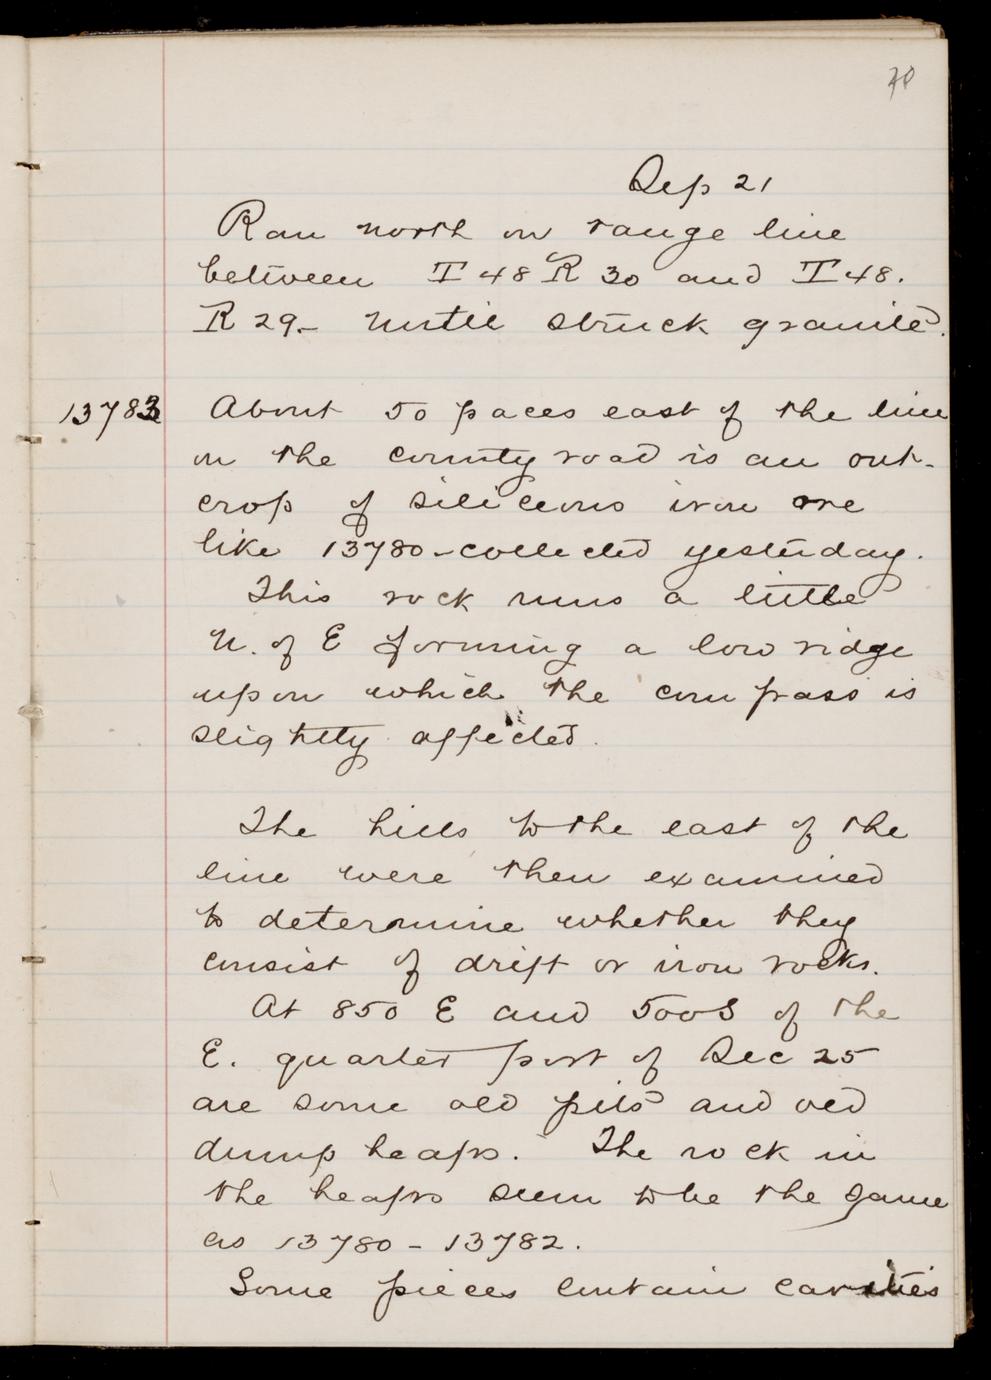 70
Sep 21
Ran north on range line
between T 48 R 30 and T 48.
R 29 - until struck granite.
13783 About 50 paces east of the line
on the county road is an out-
crop of siliceous iron ore
like 13780 - collected yesterday.
This rock runs a little
N. of E forming a low ridge
upon which the compass is
slightly affected.
The hills to the east of the
line were then examined
to determine whether they
consist of drift or iron rocks.
At 850 E and 500 S of the
E. quarter post of Sec 25
are some old pits and old
dump heaps. The rock in
the heaps seem to be the same
as 13780 - 13782.
Some pieces contain cavities